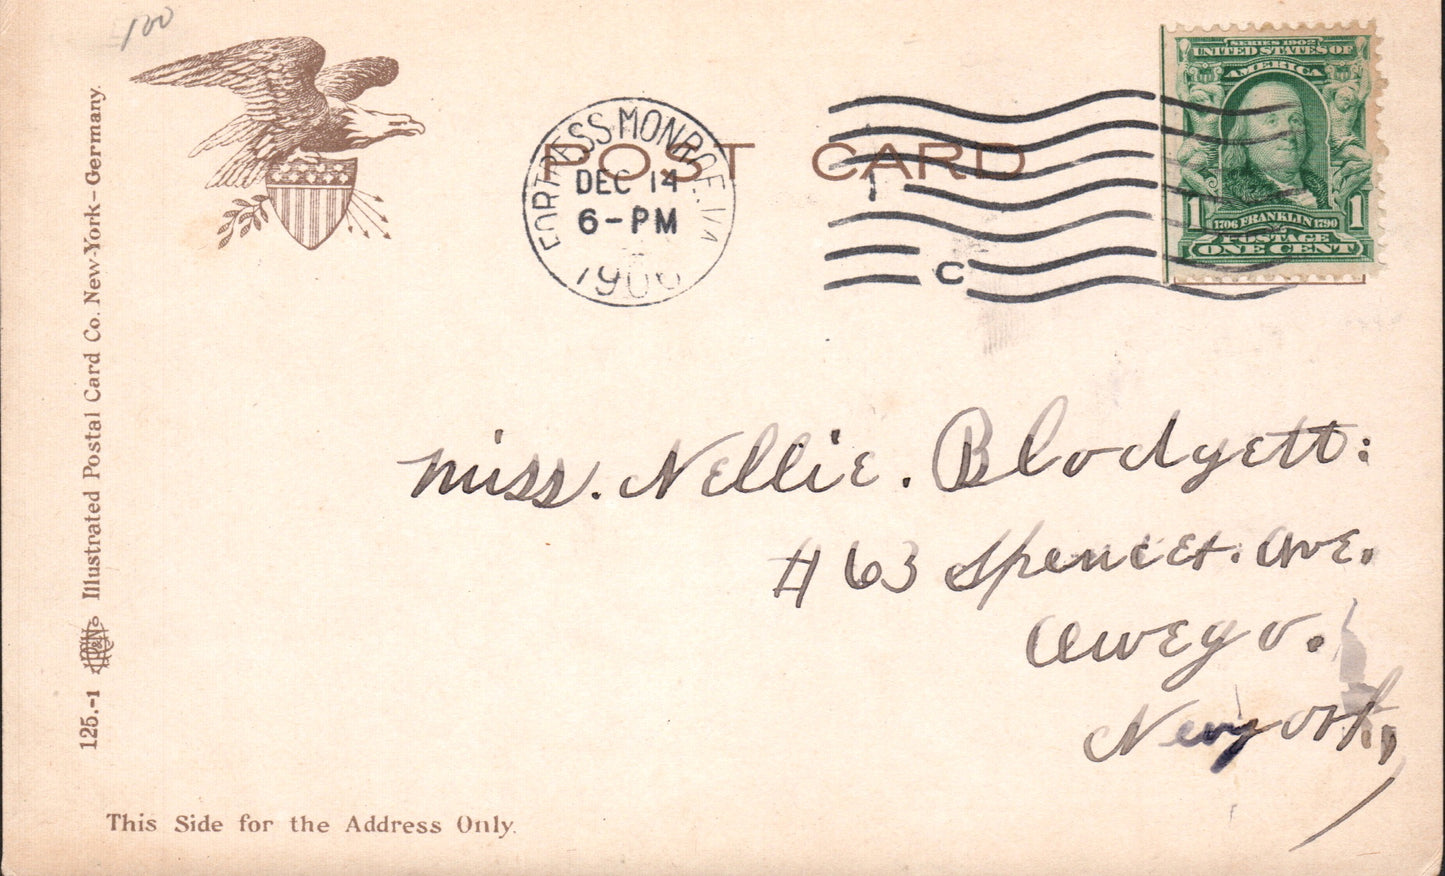 100
POST CARD
FORTRESS MONROE. VA
DEC 14
6-PM
1906
1
C
SERIES 1902
UNITED STATES OF
AMERICA
1 1706 FRANKLIN 1790 1
POSTAGE
ONE CENT
Miss. Nellie. Blodgett:
# 63 Spencer. Ave.
Owego.
New York,
125.-1 Illustrated Postal Card Co. New-York-Germany.
This Side for the Address Only.